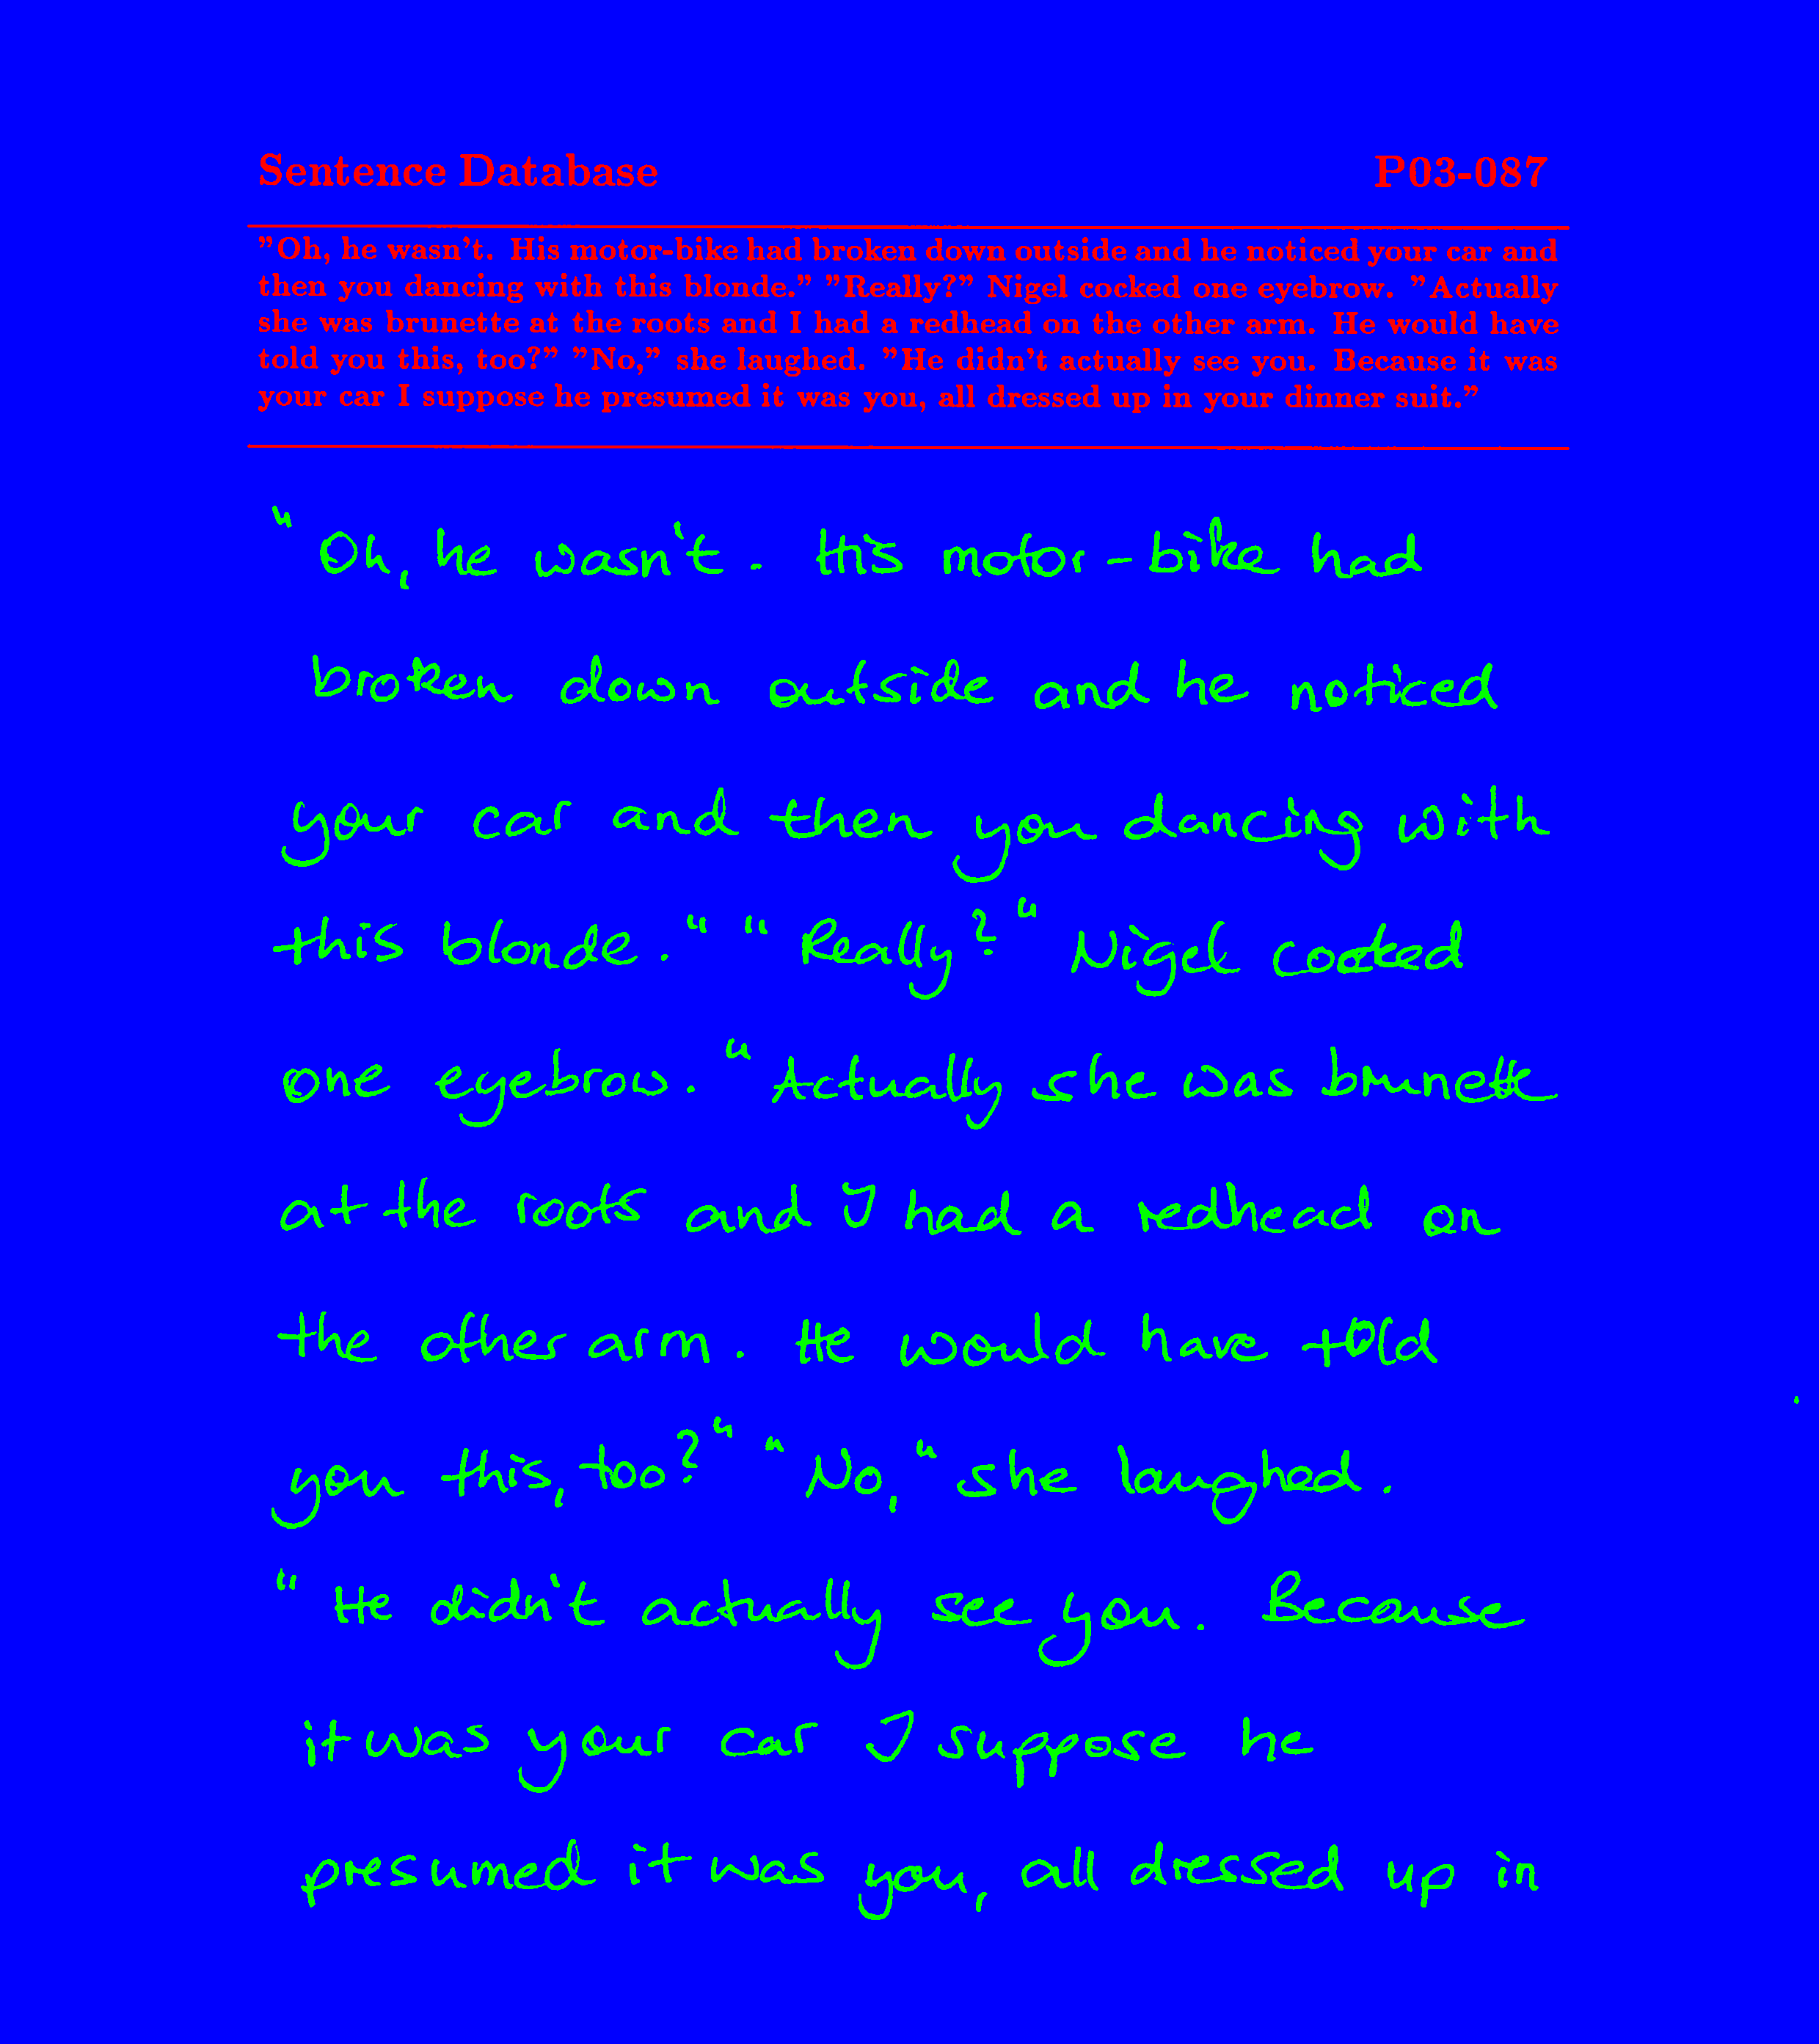 Sentence Database P03-087
"Oh, he wasn't. His motor-bike had broken down outside and he noticed your car and
then you dancing with this blonde." "Really?" Nigel cocked one eyebrow. "Actually
she was brunette at the roots and I had a redhead on the other arm. He would have
told you this, too?" "No," she laughed. "He didn't actually see you. Because it was
your car I suppose he presumed it was you, all dressed up in your dinner suit."
"Oh, he wasn't. His motor-bike had
broken down outside and he noticed
your car and then you dancing with
this blonde." "Really?" Nigel cocked
one eyebrow. "Actually she was brunette
at the roots and I had a redhead on
the other arm. He would have told
you this, too?" "No," she laughed.
"He didn't actually see you. Because
it was your car I suppose he
presumed it was you, all dressed up in